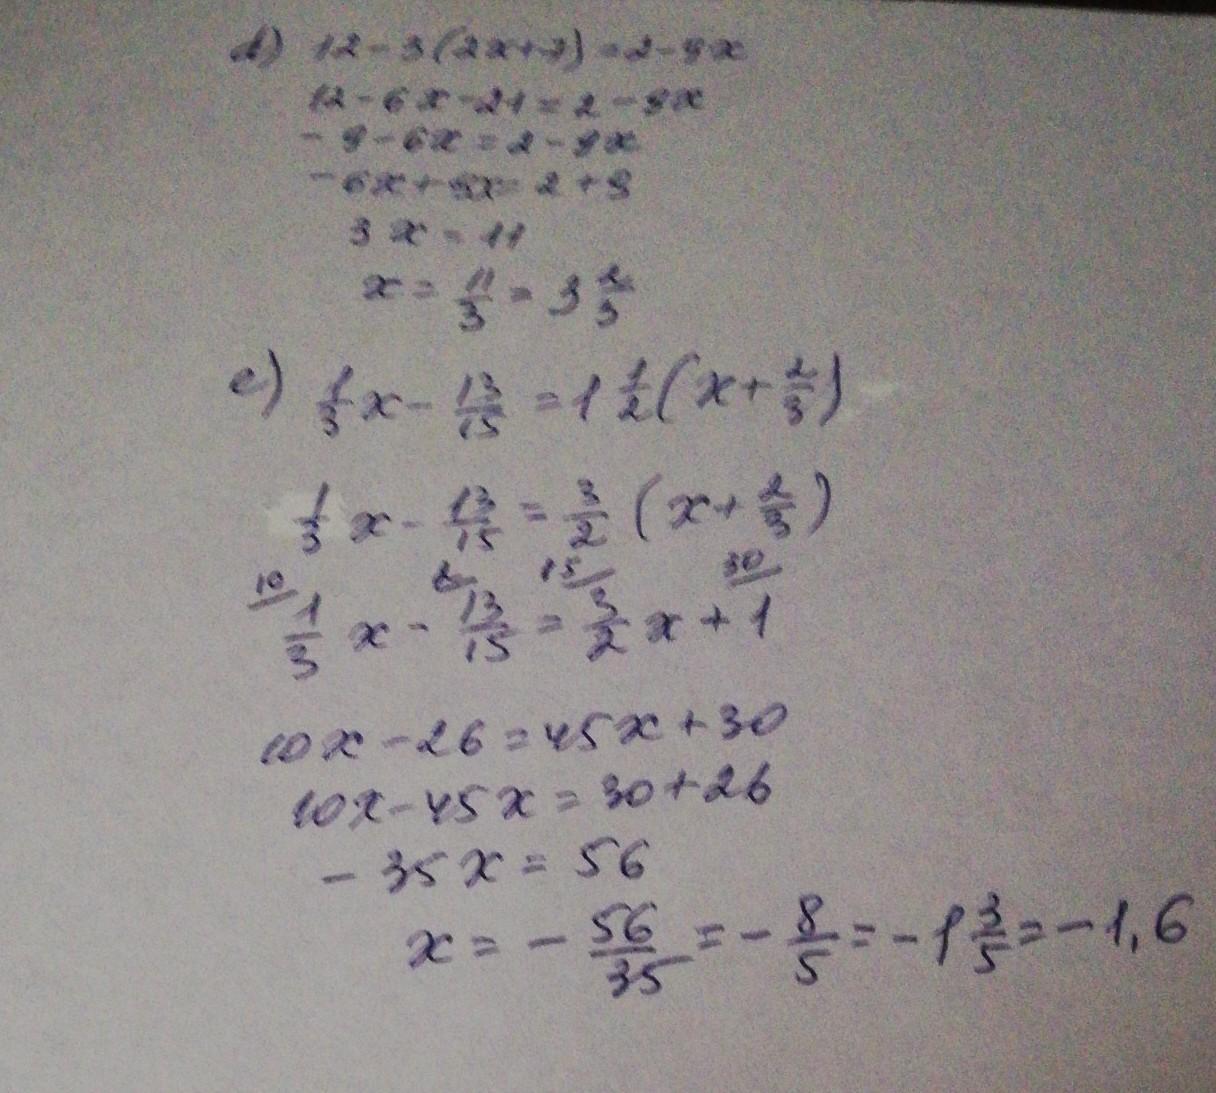 d) 12 - 3(2x+7) = 2 - 9x
12 - 6x - 21 = 2 - 9x
- 9 - 6x = 2 - 9x
- 6x + 9x = 2 + 9
3x = 11
x = 11/3 = 3 2/3
e) 1/3 x - 13/15 = 1 1/2 (x + 2/3)
1/3 x - 13/15 = 3/2 (x + 2/3)
10/ 2/ 15/ 30/
1/3 x - 13/15 = 3/2 x + 1
10x - 26 = 45x + 30
10x - 45x = 30 + 26
- 35x = 56
x = - 56/35 = - 8/5 = - 1 3/5 = - 1,6